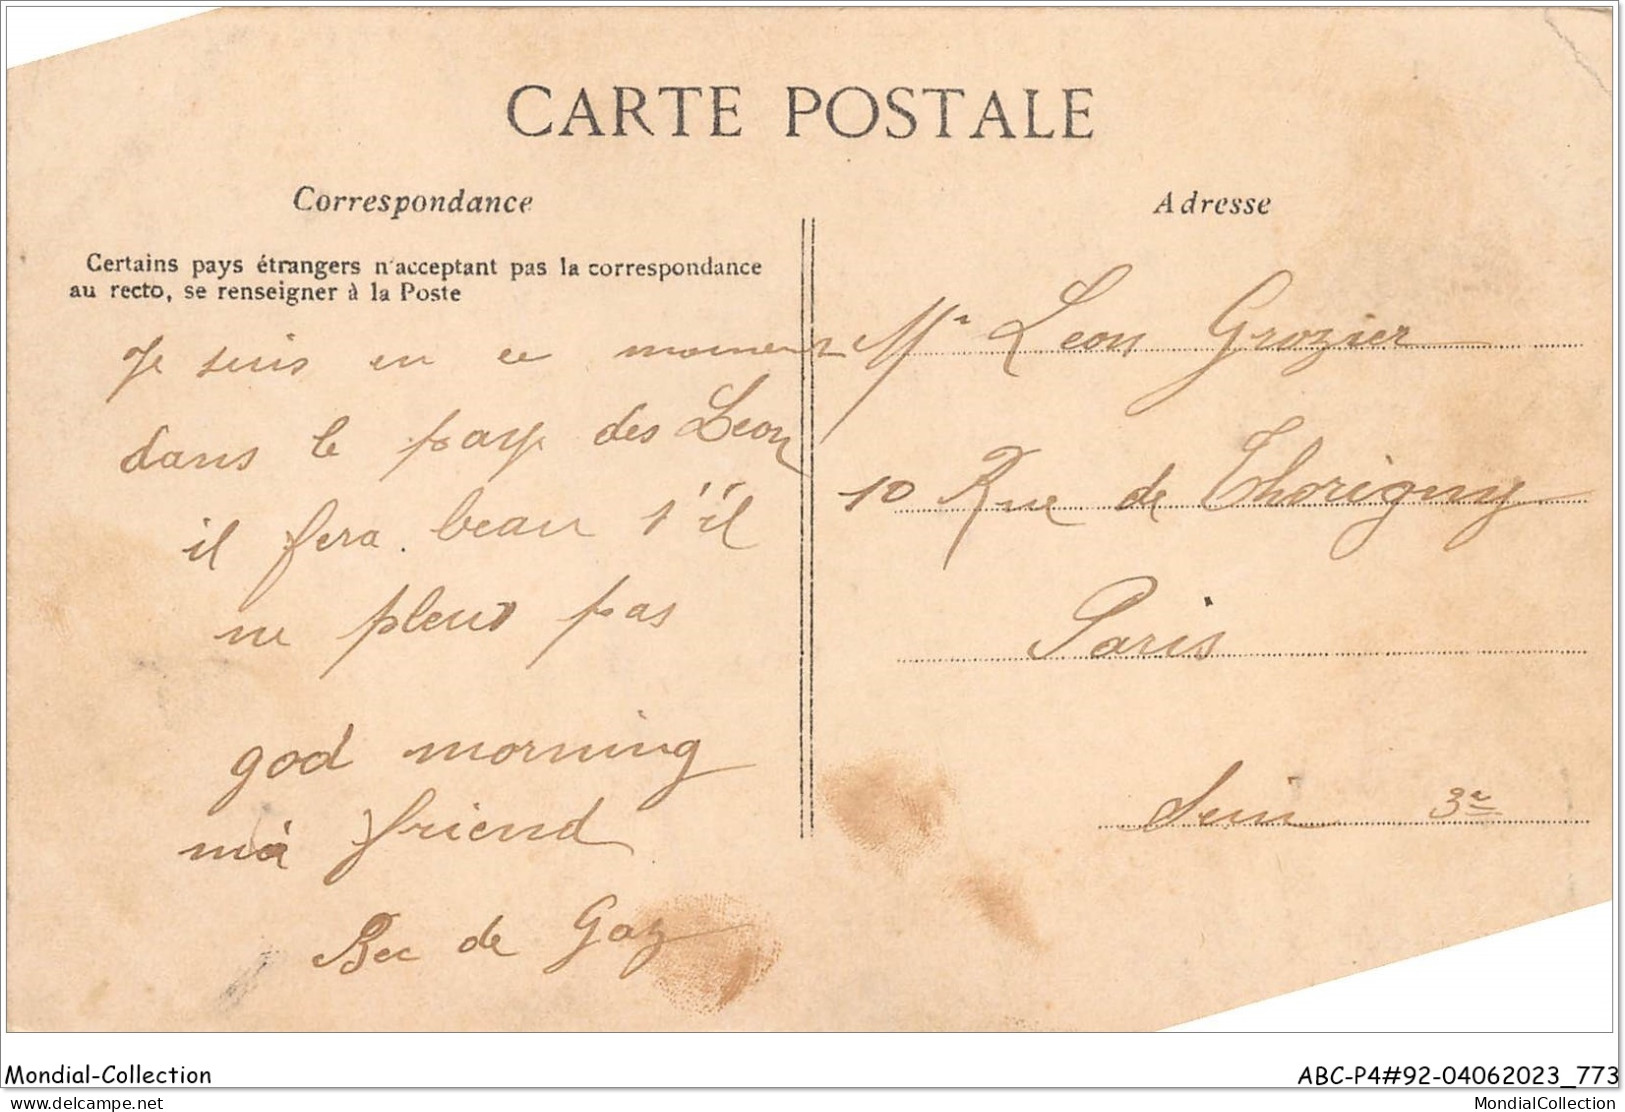 CARTE POSTALE
Correspondance
Certains pays étrangers n'acceptant pas la correspondance
au recto, se renseigner à la Poste
Je suis en ce moment
dans le pays des Leon
il fera beau s'il
ne pleut pas
god morning
ma friend
Bec de Gaz
Adresse
Mr Leon Grozier
10 Rue de Thorigny
Paris
Sein 3e
Mondial-Collection
ABC-P4#92-04062023_773
delcampe.net
MondialCollection